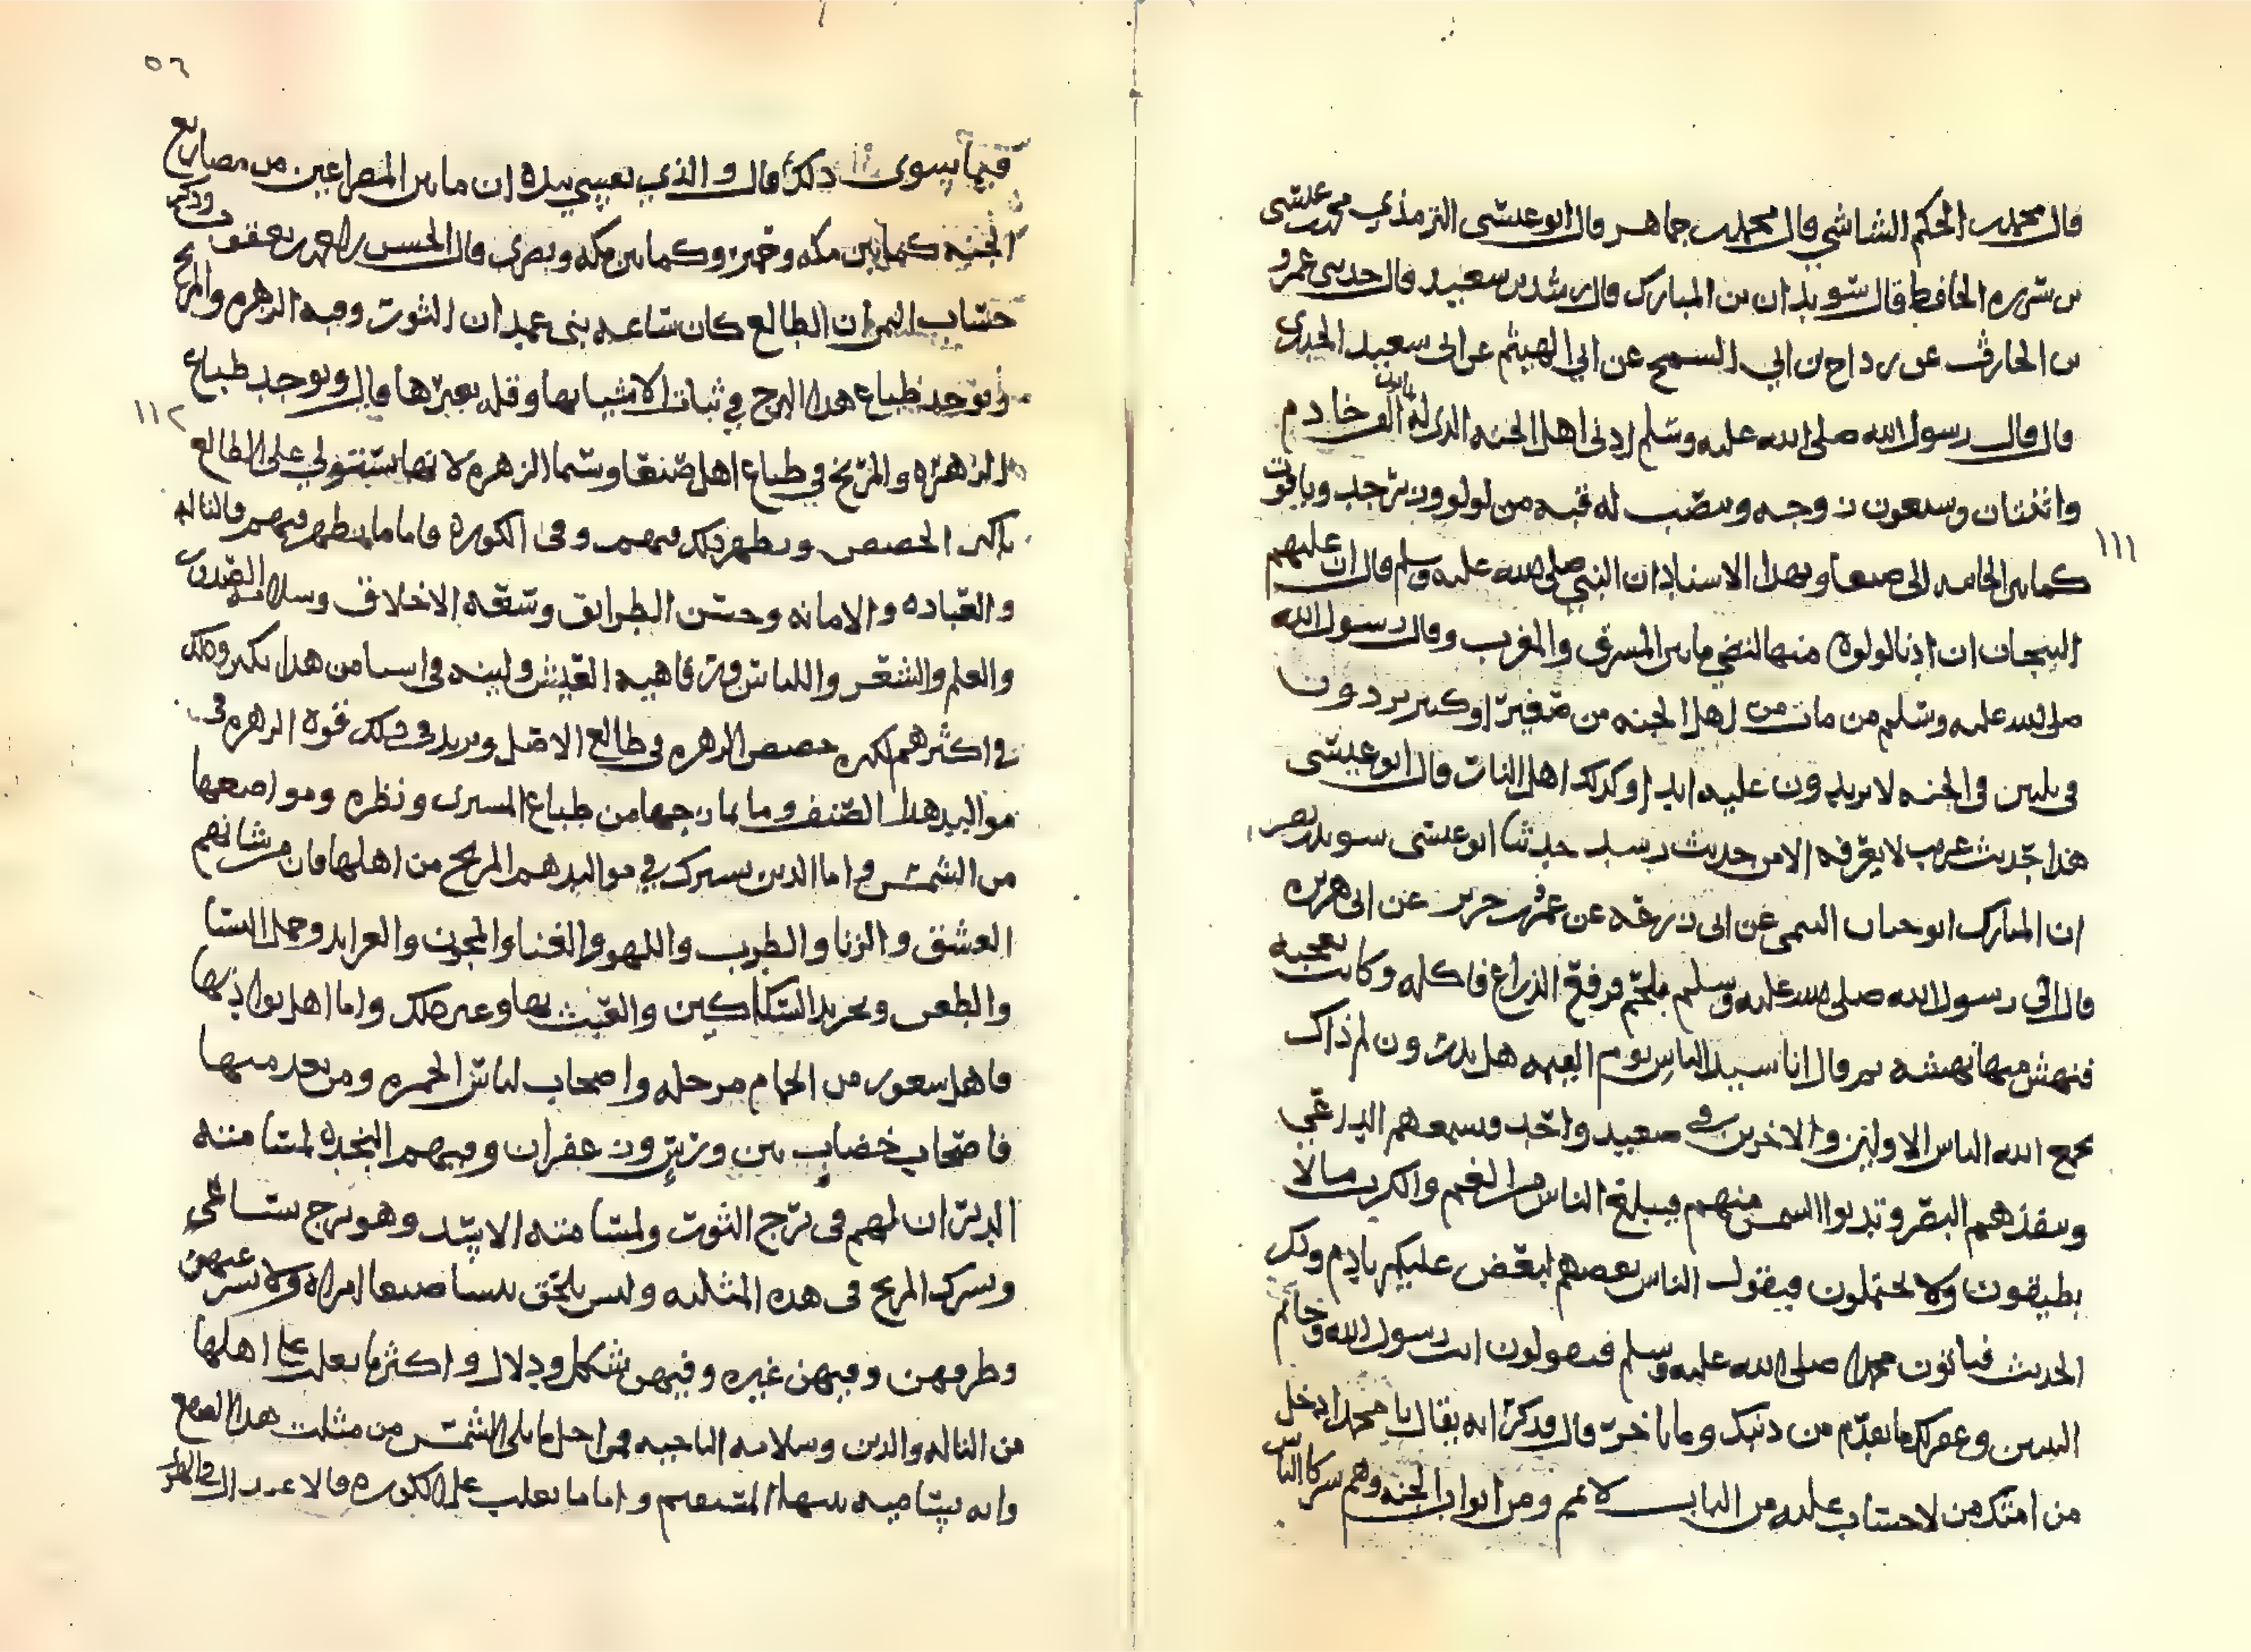 قال محمد بن الحكم الشاشي قال محمد بن جماهر قال ابو عيسى الترمذي محمد بن عيسى
بن سوره الحافظ قال سويد ان بن المبارك قال رشدين سعيد قال حدثني عمرو
بن الحارث عن دراج بن ابي السمح عن ابي الهيثم عن ابي سعيد الخدري
قال قال رسول الله صلى الله عليه وسلم ادنى اهل الجنه الذي له ثمانون الف خادم
واثنتان وسبعون زوجه وينصب له قبه من لولو وزبرجد وياقوت
كما بين الجابيه الى صنعا وبهذا الاسناد ان النبي صلى الله عليه وسلم قال ان عليهم
التيجان ان ادنا لولوة منها لتضي ما بين المشرق والمغرب وقال رسول الله
صلى الله عليه وسلم من مات من اهل الجنه من صغير او كبير يردون
في ثلثين في الجنه لا يزيدون عليه ابدا وكذلك اهل النار قال ابو عيسى
هذا حديث غريب لا يعرفه الا من حديث رشد حدثنا ابو عيسى سويد بن نصر
ان المبارك ابو حيان التيمي عن ابي زرعه عن عمرو بن جرير عن ابي هريره
قال اتي رسول الله صلى الله عليه وسلم بلحم فرفع الذراع فاكله وكانت تعجبه
فنهش منها نهشه ثم قال انا سيد الناس يوم القيمه هل تدرون لم ذاك
يجمع الله الناس الاولين والاخرين في صعيد واحد ويسمعهم الداعي
وينفذهم البصر وتدنوا الشمس منهم فيبلغ الناس من الغم والكرب مالا
يطيقون ولا يحتملون فيقول الناس بعضهم لبعض عليكم بادم وذكر
الحديث فياتون محمدا صلى الله عليه وسلم فيقولون انت رسول الله وخاتم
النبيين وغفر لك ما تقدم من ذنبك وما تاخر قال وذكر انه يقال يا محمد ادخل
من امتك من لا حساب عليه من الباب الايمن ومن ابواب الجنه وهم شركا الناس
١١١
٥٦
فيما سوى ذلك قال والذي نفسي بيده ان ما بين المصراعين من مصاريع
الجنه كما بين مكه وحمير وكما بين مكه وبصرى قال الحسن بن احمد بن يعقوب وذكر
حساب اليمن ان الطالع كان ساعه بنى غمدان الثور وفيه الزهره والمريخ
ويوجد طباع هذا البرج في ثبات الاشيا بها وقله تغيرها قال ويوجد طباع
الزهره والمريخ في طباع اهل صنعا وسما الزهره لانها ستتولي على الطالع
باكثر الحصص ويظهر ذلك فيهم وفي الكوره فاما ما يظهر فيهم فالتاله
والعباده والامانه وحسن الطرايق وسعه الاخلاق وسلامه الصدور
والعلم والشعر واللباس ورفاهيه العيش ولينه في اسبا من هذا يكبر وذلك
في اكثرهم لكبره حصص الزهره في طالع الاصل ويزيد في ذلك قوه الزهره في
مواليد هذا الصنف وما يمازجها من طباع المشترى ونظره ومواضعها
من الشمس واما الذين يشترك في مواليدهم المريخ من اهلها فان من شانهم
العشق والزنا والطرب واللهو والغنا والمجون
والطعن وتحريد السكاكين والعبث بها وغير ذلك واما اهل بواديها
فاهل شعور من الحمام مرحله واصحاب لباس الحمره ومن بعد منها
فاصحاب خضاب وزعفران وفيهم النجده لمسامتته
الدبران لهم في برج الثور ولمسامتته الاسد وهو برج سباعي
ويشرك المريخ في هذه المثلثه وليس يلحق بنسا صنعا امراه ولا يسر عيبهن
وظرفهن وفيهن غيره وفيهن شكل ودلال واكثر ما يغلب على اهلها
من التاله والدين وسلامه الناحيه من احل ما يلي الشمس من مثلث هذا الصقع
وانه بيتا فيه سهما المستقيم واما ما يغلب على الكوره فالاعتدال في الحر
١١٢